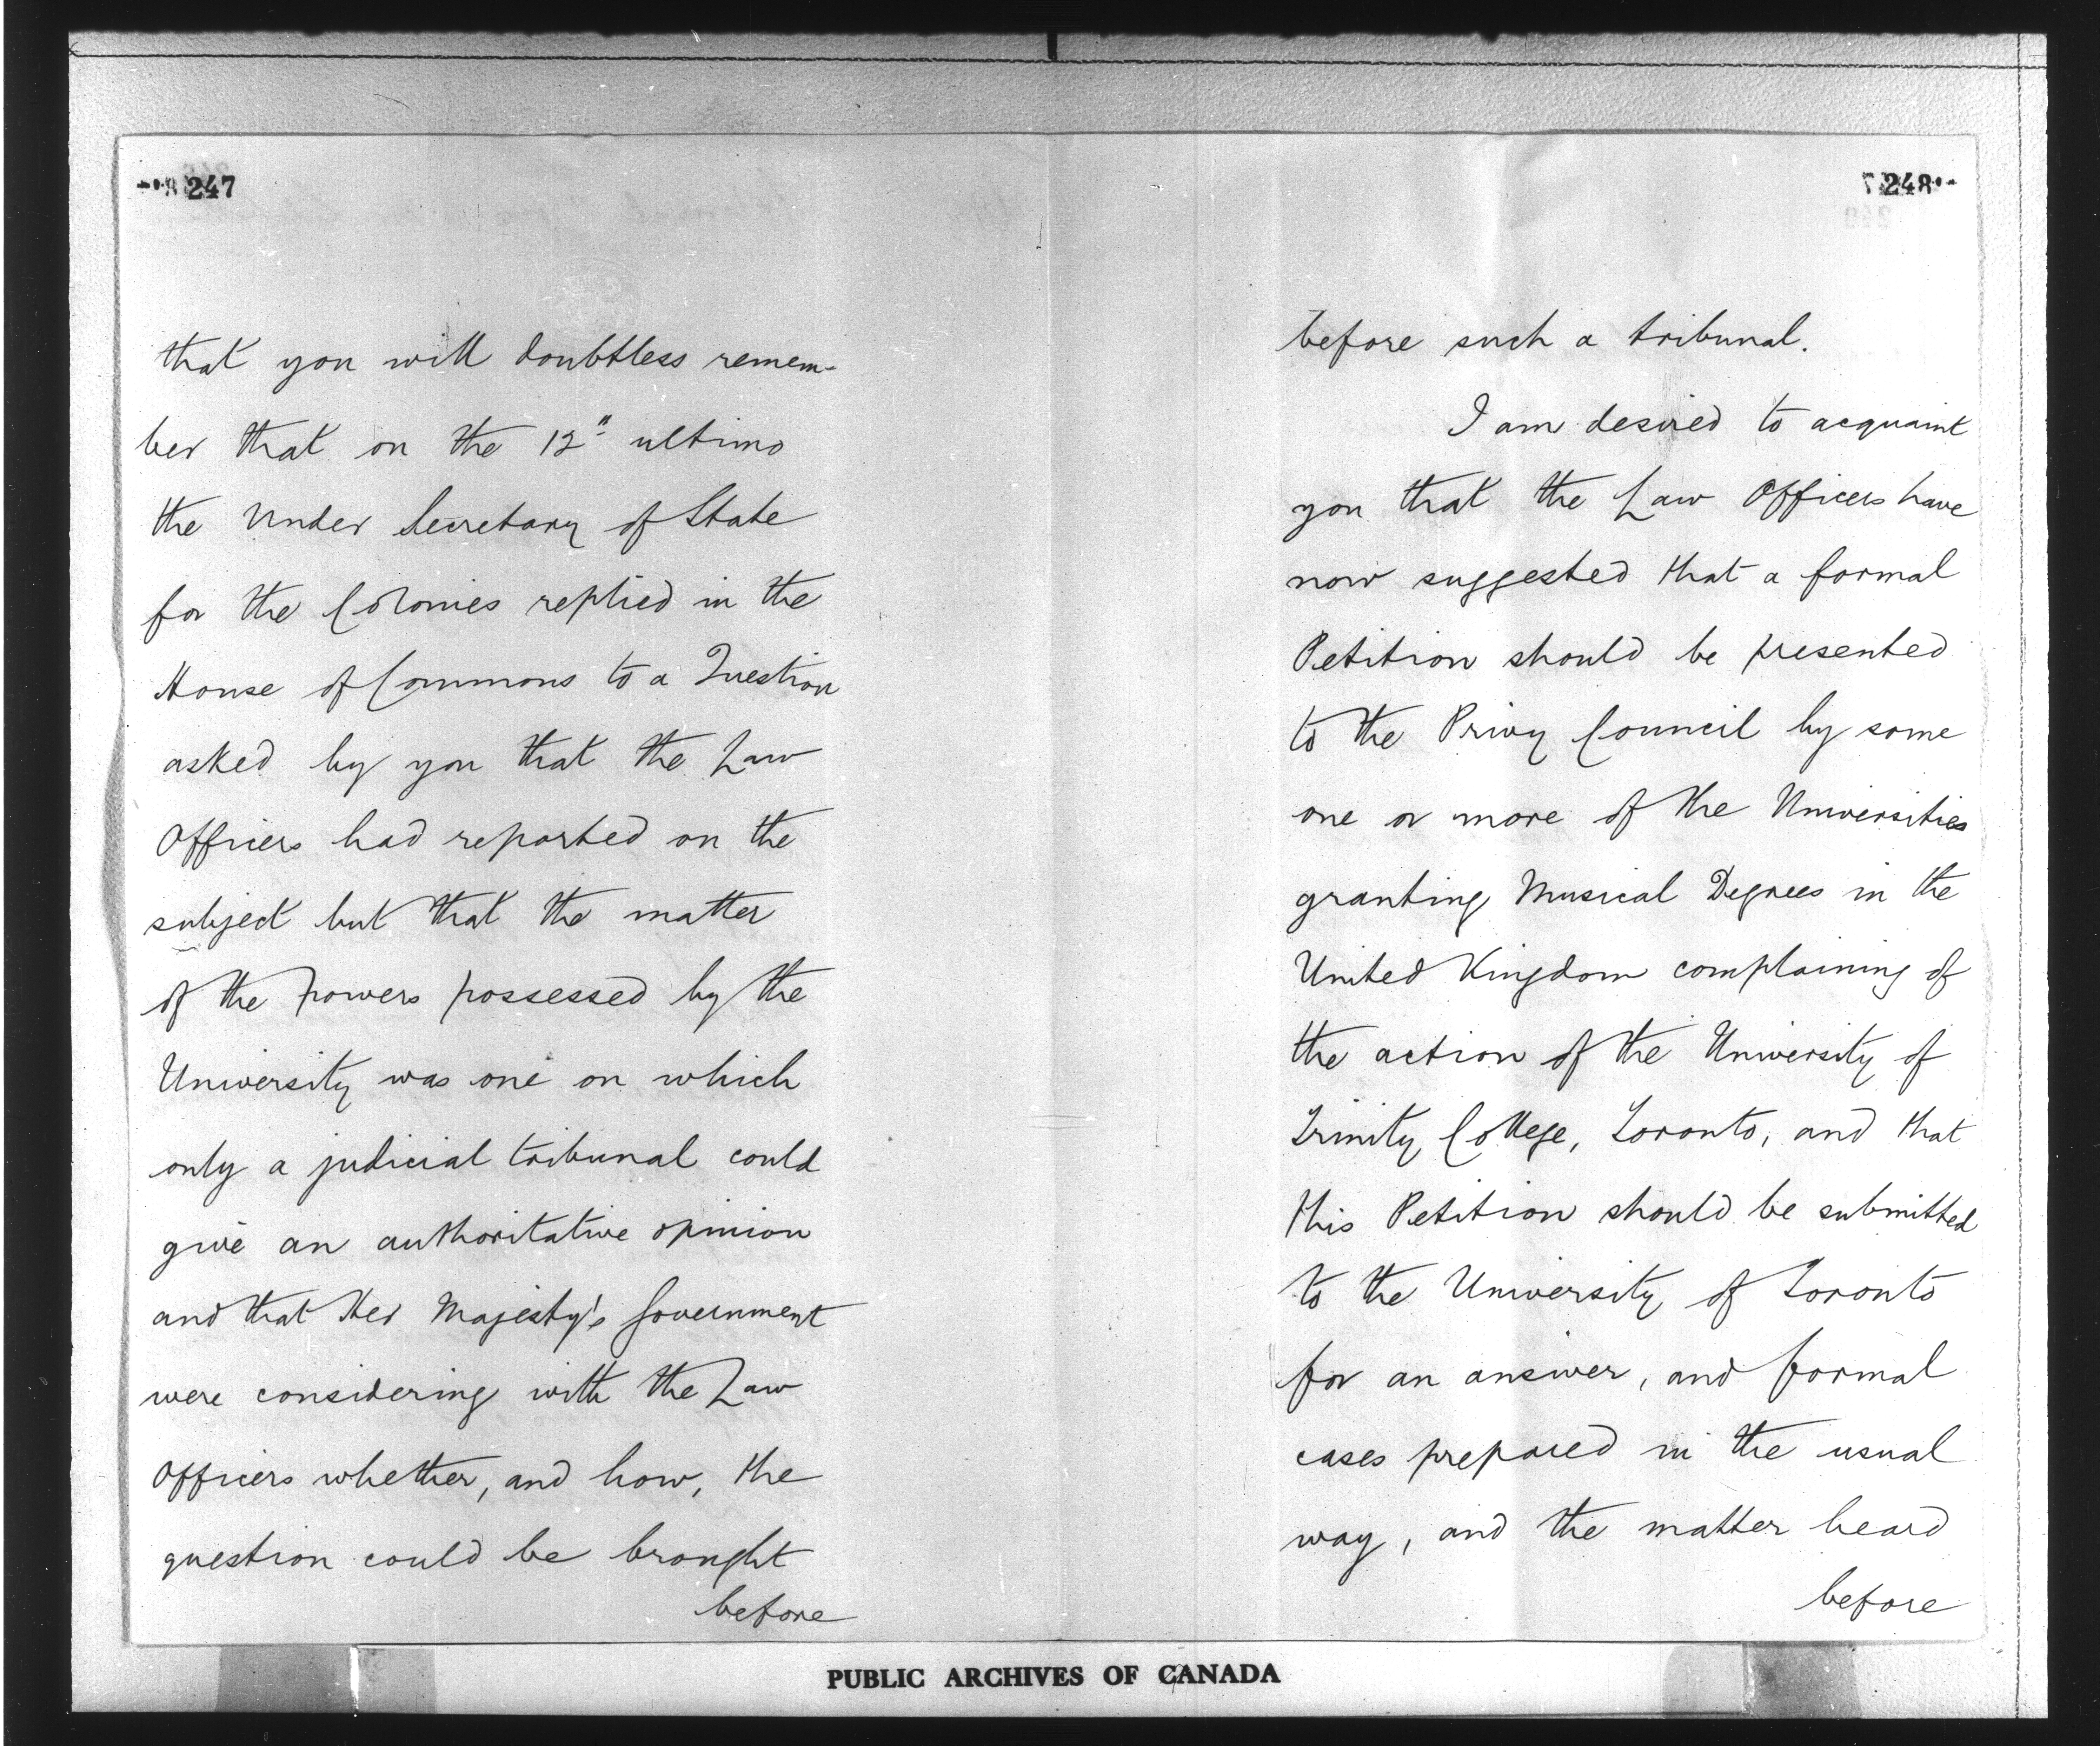 247
that you will doubtless remem-
ber that on the 12" ultimo
the Under Secretary of State
for the Colonies replied in the
House of Commons to a Question
asked by you that the Law
Officers had reported on the
subject but that the matter
of the powers possessed by the
University was one on which
only a judicial tribunal could
give an authoritative opinion
and that Her Majesty's Government
were considering with the Law
Officers whether, and how, the
question could be brought
before
248
before such a tribunal.
I am desired to acquaint
you that the Law Officers have
now suggested that a formal
Petition should be presented
to the Privy Council by some
one or more of the Universities
granting Musical Degrees in the
United Kingdom complaining of
the action of the University of
Trinity College, Toronto, and that
this Petition should be submitted
to the University of Toronto
for an answer, and formal
cases prepared in the usual
way, and the matter heard
before
PUBLIC ARCHIVES OF CANADA